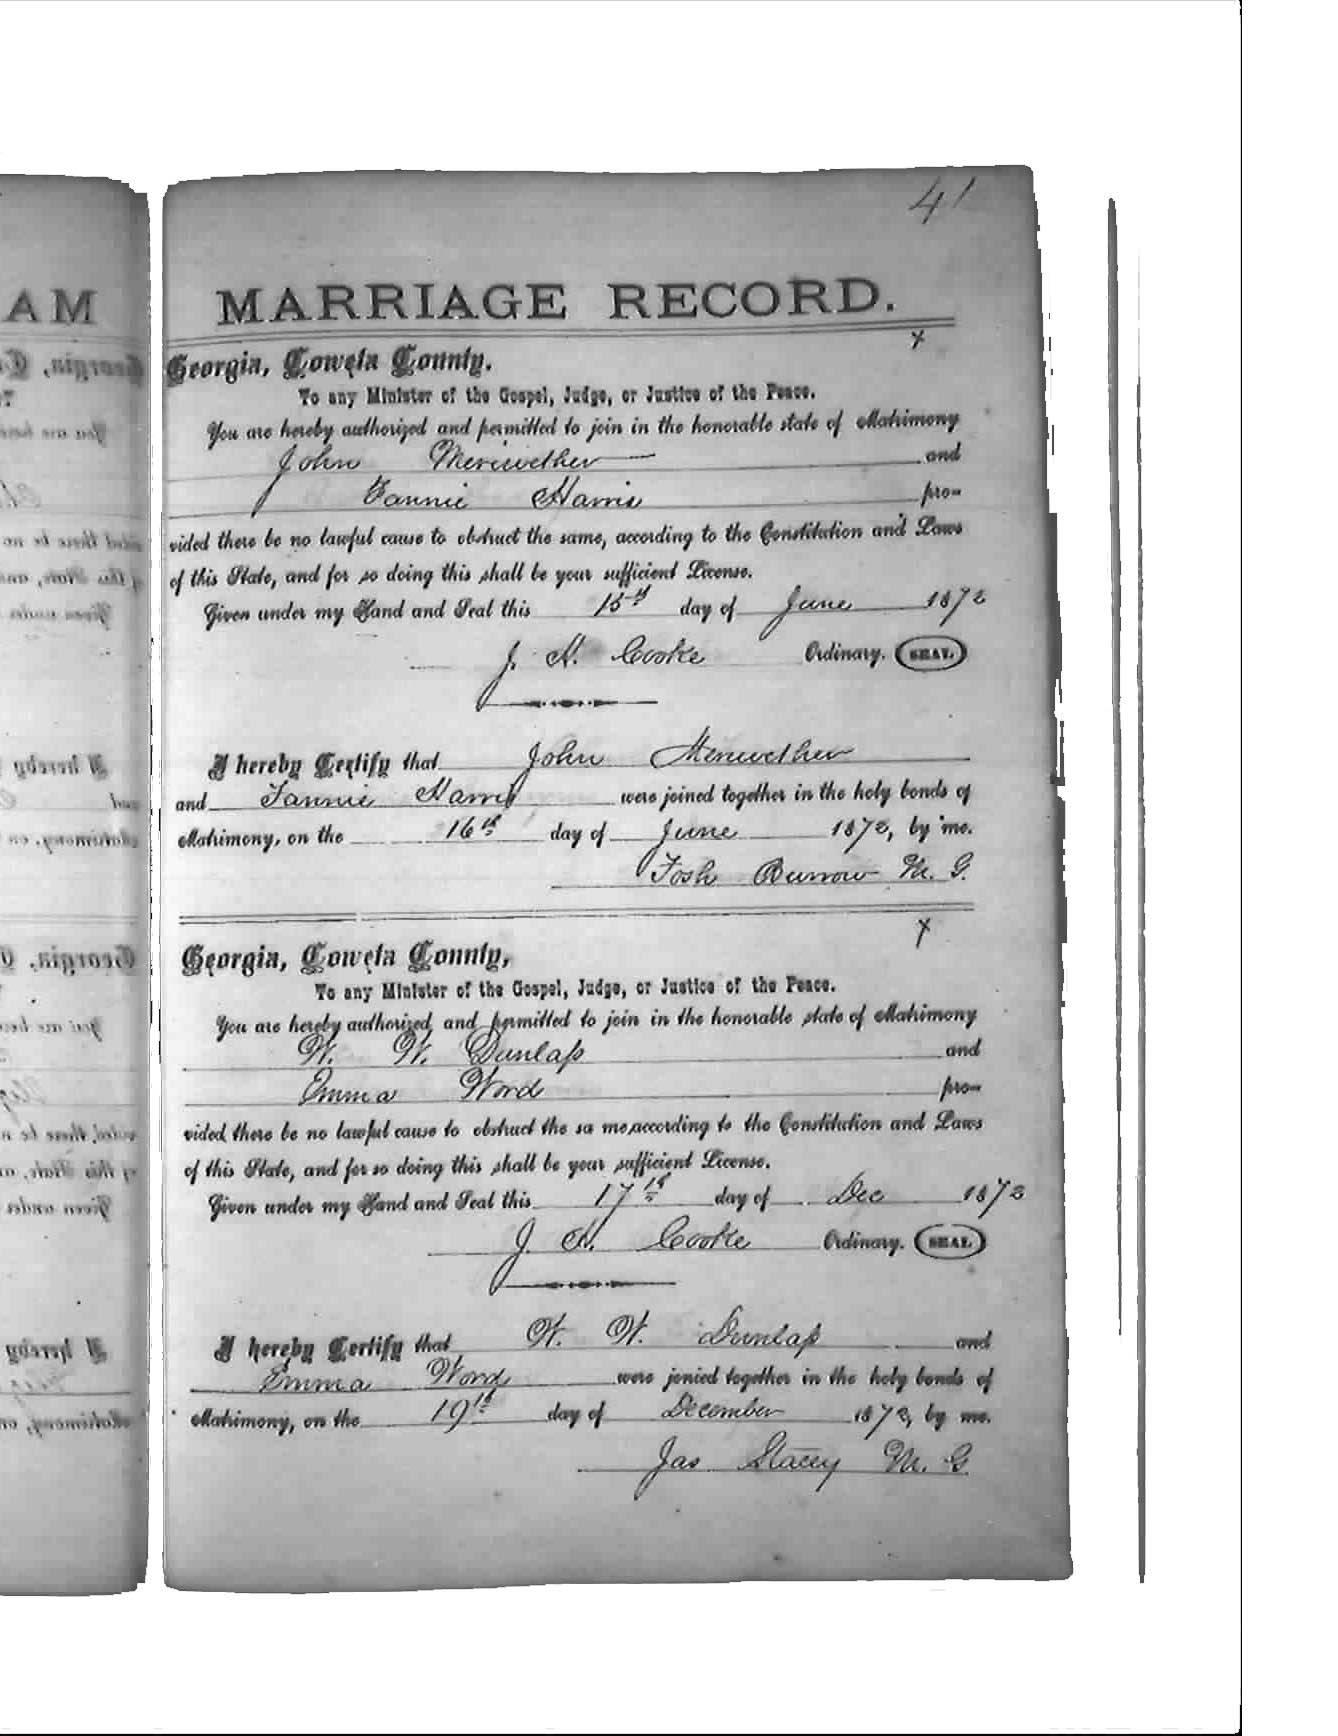 41
AM
MARRIAGE RECORD.
x
Georgia, Coweta County.
To any Minister of the Gospel, Judge, or Justice of the Peace.
You are hereby authorized and permitted to join in the honorable state of Matrimony
John Meriwether and
Fannie Harris pro-
vided there be no lawful cause to obstruct the same, according to the Constitution and Laws
of this State, and for so doing this shall be your sufficient License.
Given under my Hand and Seal this 15th day of June 1872
J. H. Cooke Ordinary. SEAL
I hereby Certify that John Meriwether
and Fannie Harris were joined together in the holy bonds of
Matrimony, on the 16th day of June 1872, by me.
Josh Burrow M. G.
x
Georgia, Coweta County,
To any Minister of the Gospel, Judge, or Justice of the Peace.
You are hereby authorized and permitted to join in the honorable state of Matrimony
W. W. Dunlap and
Emma Word pro-
vided there be no lawful cause to obstruct the sa me,according to the Constitution and Laws
of this State, and for so doing this shall be your sufficient License.
Given under my Hand and Seal this 17th day of Dec 1872
J. H. Cooke Ordinary. SEAL
I hereby Certify that W. W. Dunlap and
Emma Word were jonied together in the holy bonds of
Matrimony, on the 19th day of December 1872, by me.
Jas Stacey M. G.